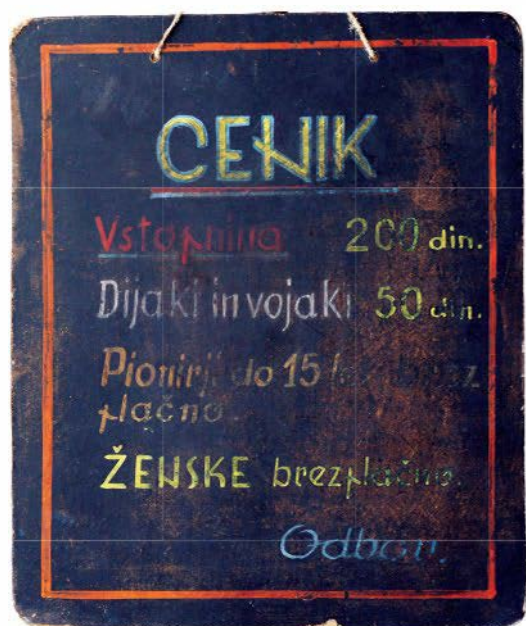 CENIK
Vstopnina 200 din.
Dijaki in vojaki 50 din.
Pionirji do 15 let brez
plačno.
ŽENSKE brezplačno.
Odbor.